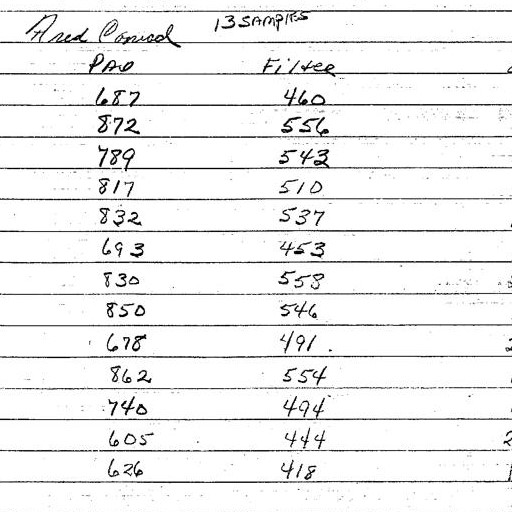 Fred Conrad 13 SAMPLES
PAD Filter
687 460
872 556
789 543
817 510
832 537
693 453
830 558
850 546
678 491
862 554
740 494
605 444
626 418